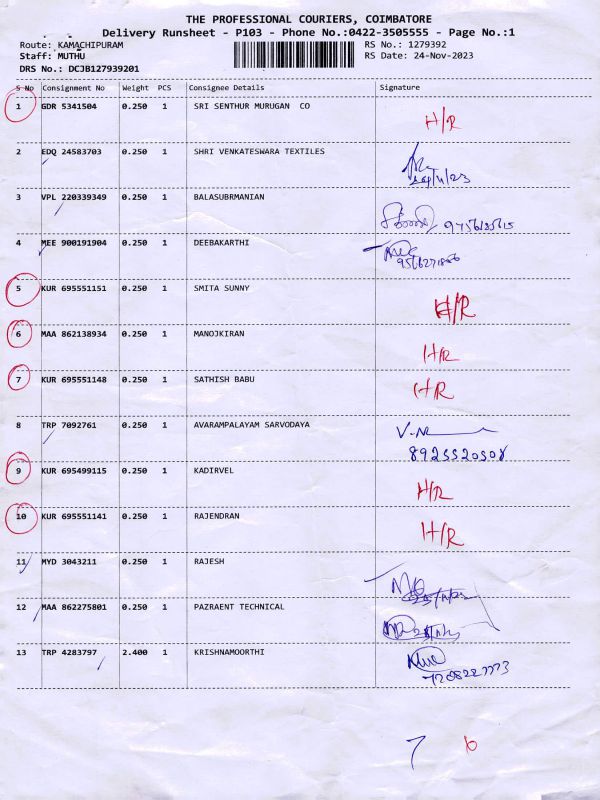 THE PROFESSIONAL COURIERS, COIMBATORE
Delivery Runsheet - P103 - Phone No.:0422-3505555 - Page No.:1
Route: KAMACHIPURAM RS No.: 1279392
Staff: MUTHU RS Date: 24-Nov-2023
DRS No.: DCJB127939201
S No Consignment No Weight PCS Consignee Details Signature
1 GDR 5341504 0.250 1 SRI SENTHUR MURUGAN CO H/R
2 EDQ 24583703 0.250 1 SHRI VENKATESWARA TEXTILES
3 VPL 220339349 0.250 1 BALASUBRMANIAN
4 MEE 900191904 0.250 1 DEEBAKARTHI
5 KUR 695551151 0.250 1 SMITA SUNNY H/R
6 MAA 862138934 0.250 1 MANOJKIRAN H/R
7 KUR 695551148 0.250 1 SATHISH BABU H/R
8 TRP 7092761 0.250 1 AVARAMPALAYAM SARVODAYA
8925520508
9 KUR 695499115 0.250 1 KADIRVEL H/R
10 KUR 695551141 0.250 1 RAJENDRAN H/R
11 MYD 3043211 0.250 1 RAJESH
12 MAA 862275801 0.250 1 PAZRAENT TECHNICAL
13 TRP 4283797 2.400 1 KRISHNAMOORTHI
7 6